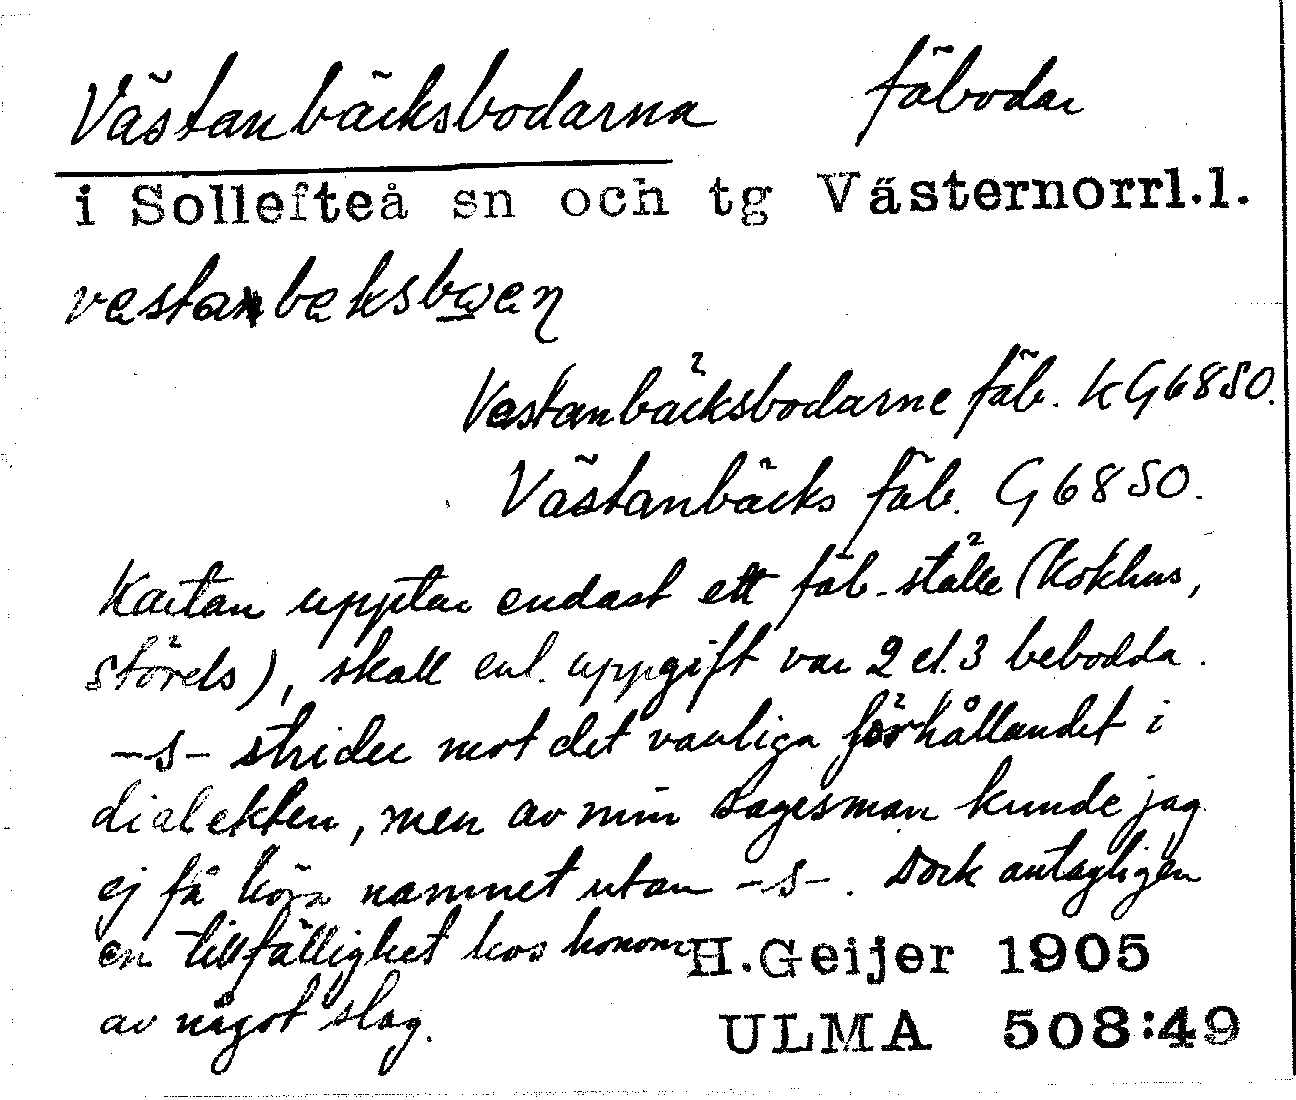 Västanbäcksbodarna fäbodar
i Sollefteå sn och tg Västernorrl.l.
vestanbeksbωen
Vestanbäcksbodarne fäb. KG6850.
Västanbäcks fäb. G6850.
Kartan upptar endast ett fäb.-ställe (Kokhus,
störels), skall enl. uppgift var 2 el. 3 bebodda.
-s- strider mot det vanliga förhållandet i
dialekten, men av min sagesman kunde jag
ej få höra namnet utan -s-. Dock antagligen
en tillfällighet hos honom
av något slag.
H.Geijer 1905
ULMA 508:49